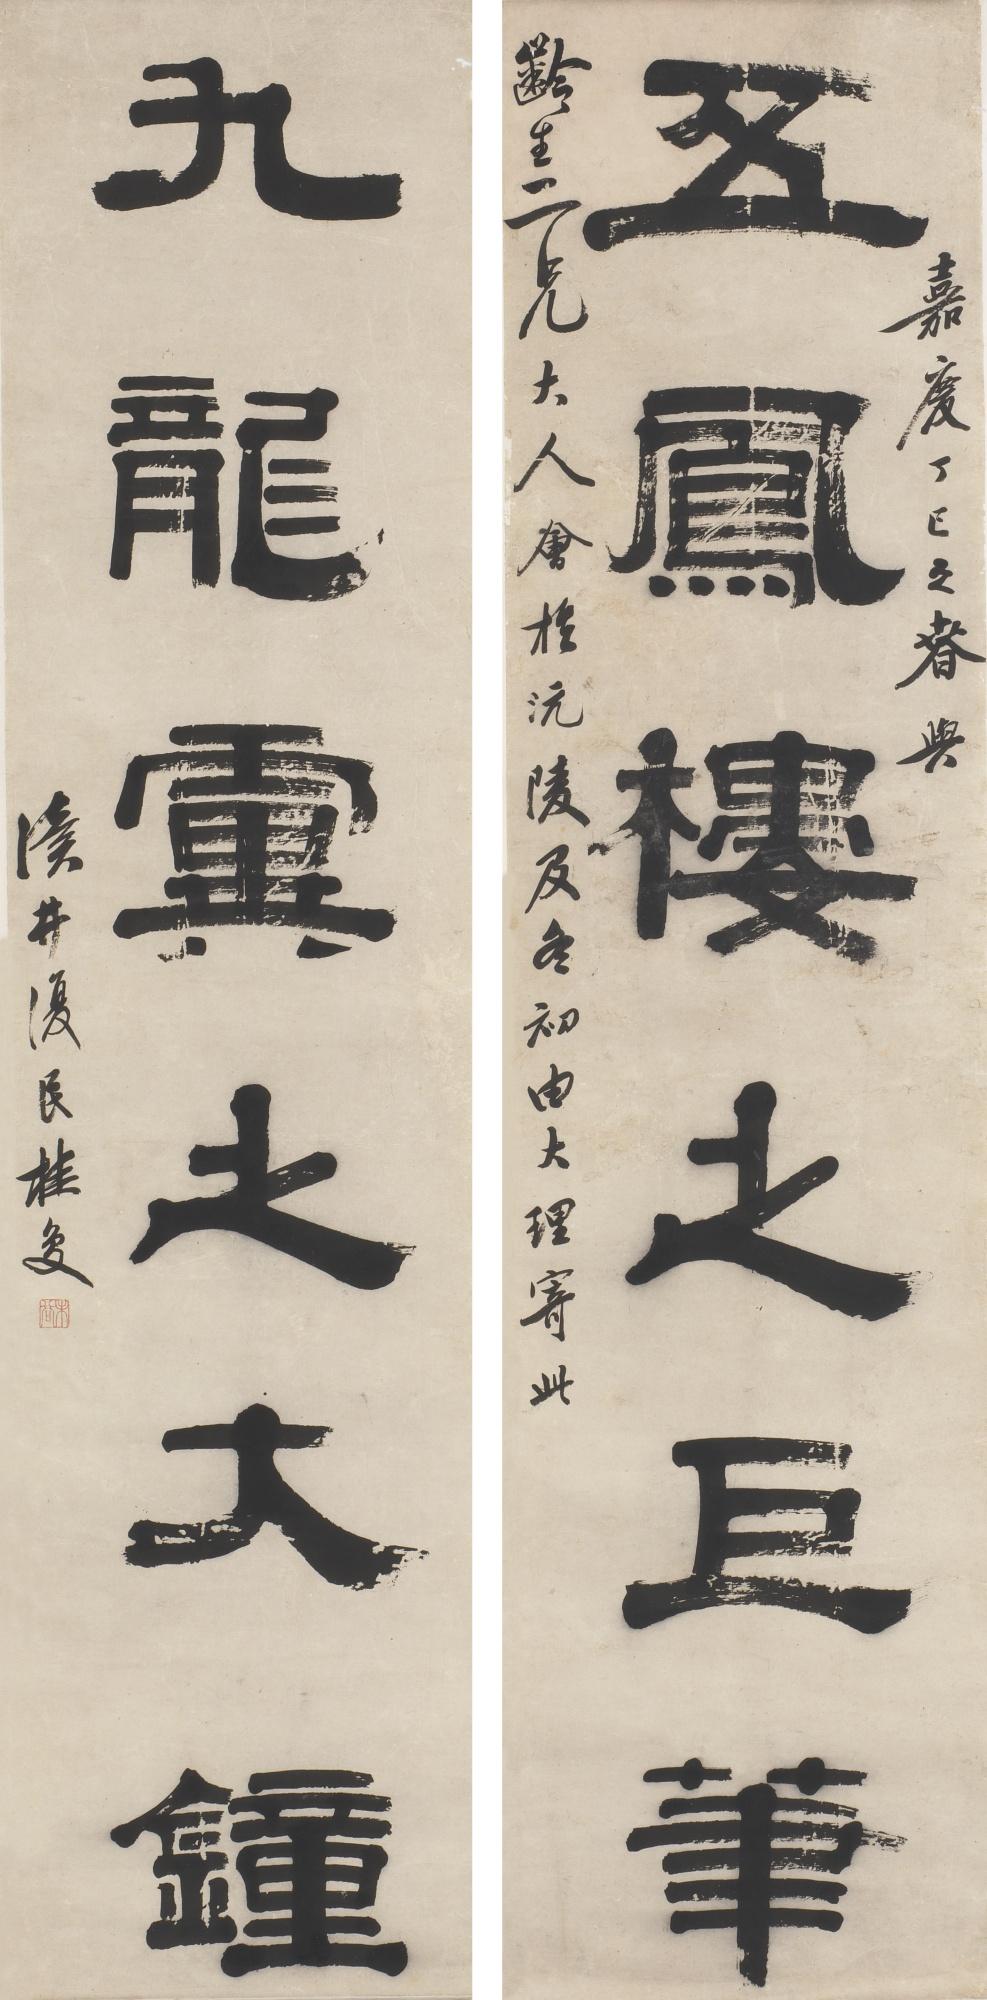 嘉慶丁巳之春與
五鳳樓之巨筆
齡生二兄大人會於沅陵及冬初由大理寄此
九龍虡之大鐘
瀆井復民桂复
未谷